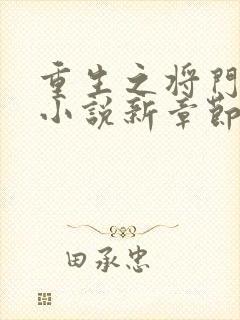 重生之将門
小説新章節
田承忠